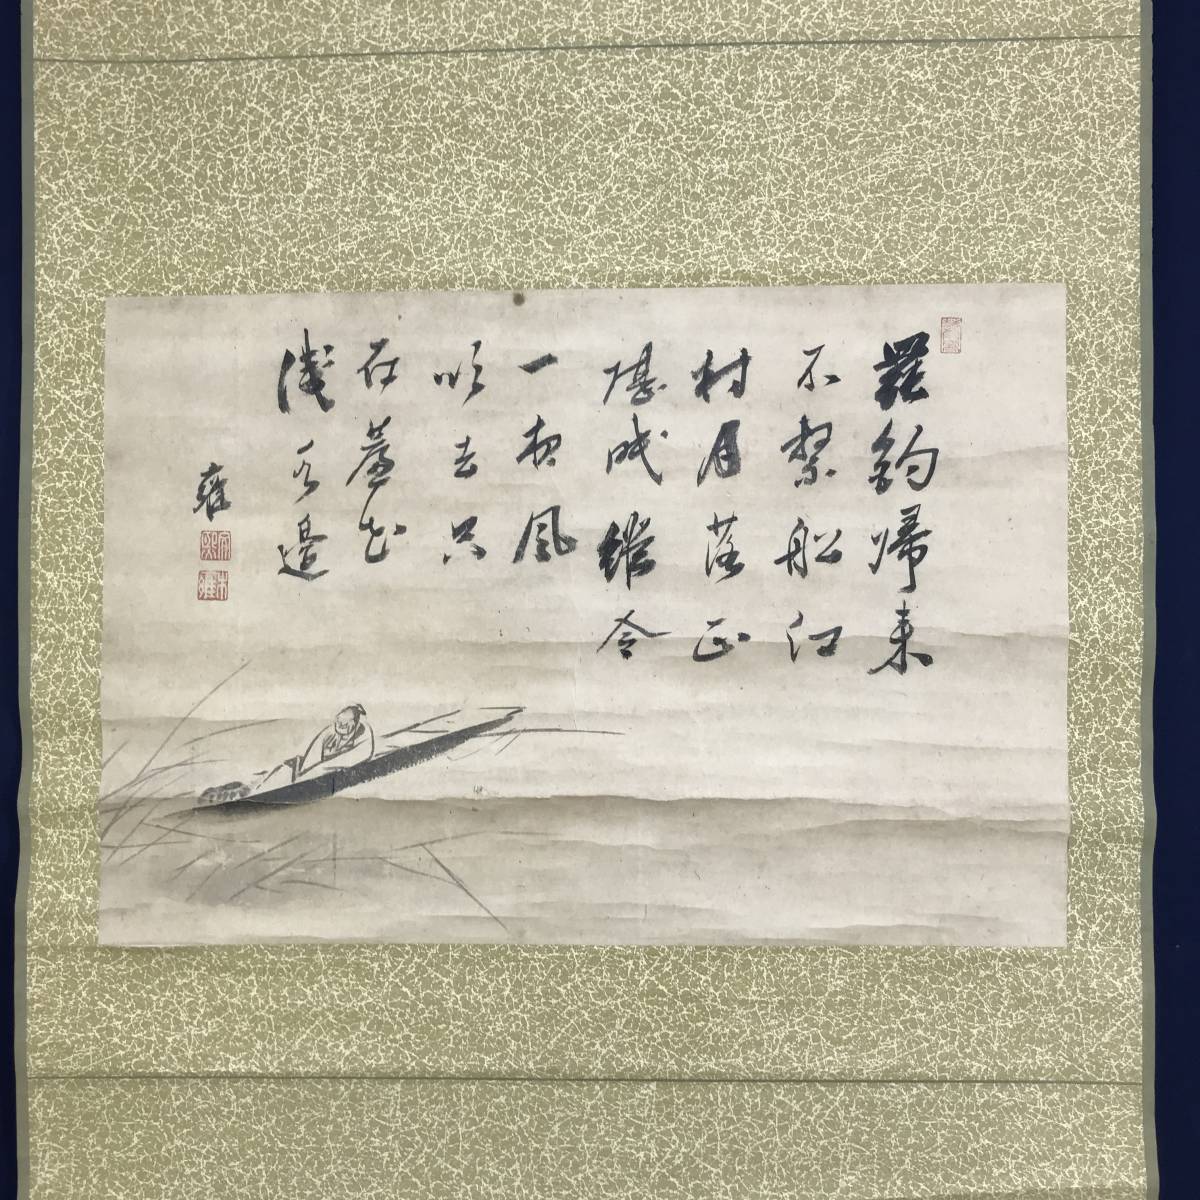 罷釣帰来
不繋船江
村月落正
堪眠縱令
一夜風
吹去只
在蘆花
淺水邊
雍